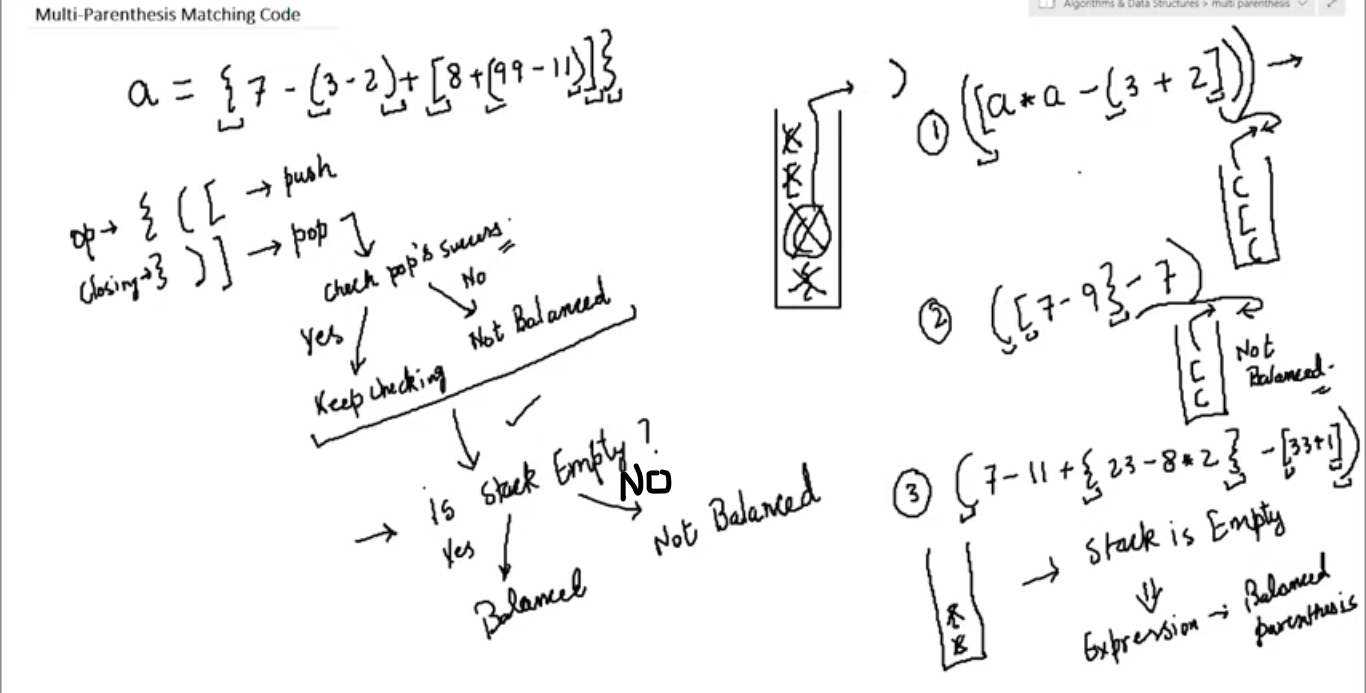 Multi-Parenthesis Matching Code
Algorithms & Data Structures > multi parenthesis
a = {7 - (3 - 2) + [8 + (99 - 11)]}
op → { ( [ → push
Closing → } ) ] → pop
Check pop's success.
Yes
No
Keep checking
Not Balanced
is Stack Empty?
Yes
NO
Balanced
Not Balanced
)
① ([a * a - (3 + 2]))
(
[
(
② ([7 - 9} - 7)
[
(
Not
Balanced.
③ (7 - 11 + {23 - 8 * 2} - [33 + 1])
→ Stack is Empty
⇓
Expression → Balanced
parenthesis